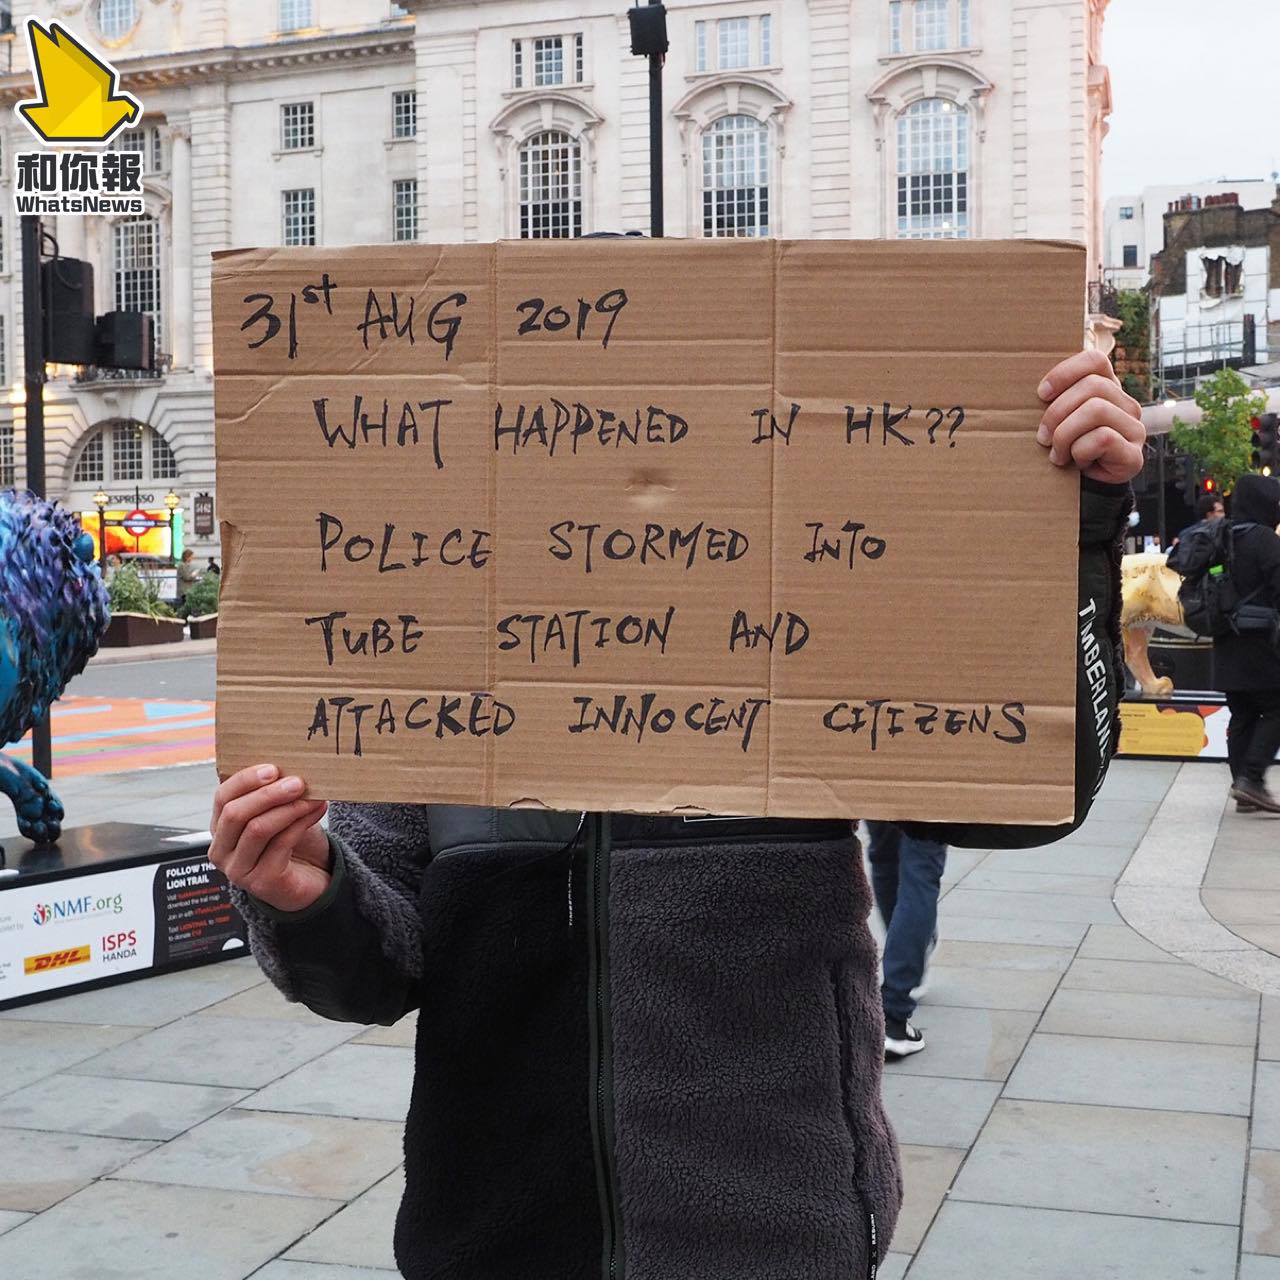 和你報
WhatsNews
31st AUG 2019
WHAT HAPPENED IN HK??
POLICE STORMED INTO
TUBE STATION AND
ATTACKED INNOCENT CITIZENS
ESPRESSO
TIMBERLAND
FOLLOW THE
LION TRAIL
NMF.org
DHL
ISPS
HANDA